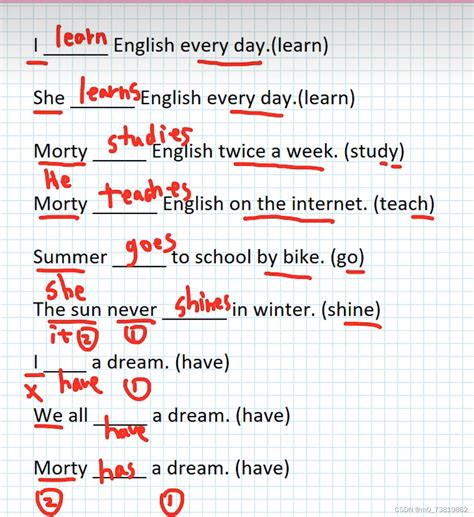 I learn English every day.(learn)
She learns English every day.(learn)
Morty studies English twice a week. (study)
He
Morty teaches English on the internet. (teach)
Summer goes to school by bike. (go)
she
The sun never shines in winter. (shine)
it ② ①
I ____ a dream. (have)
x have ①
We all ____ a dream. (have)
have
Morty has a dream. (have)
② ①
CSDN @m0_73819862